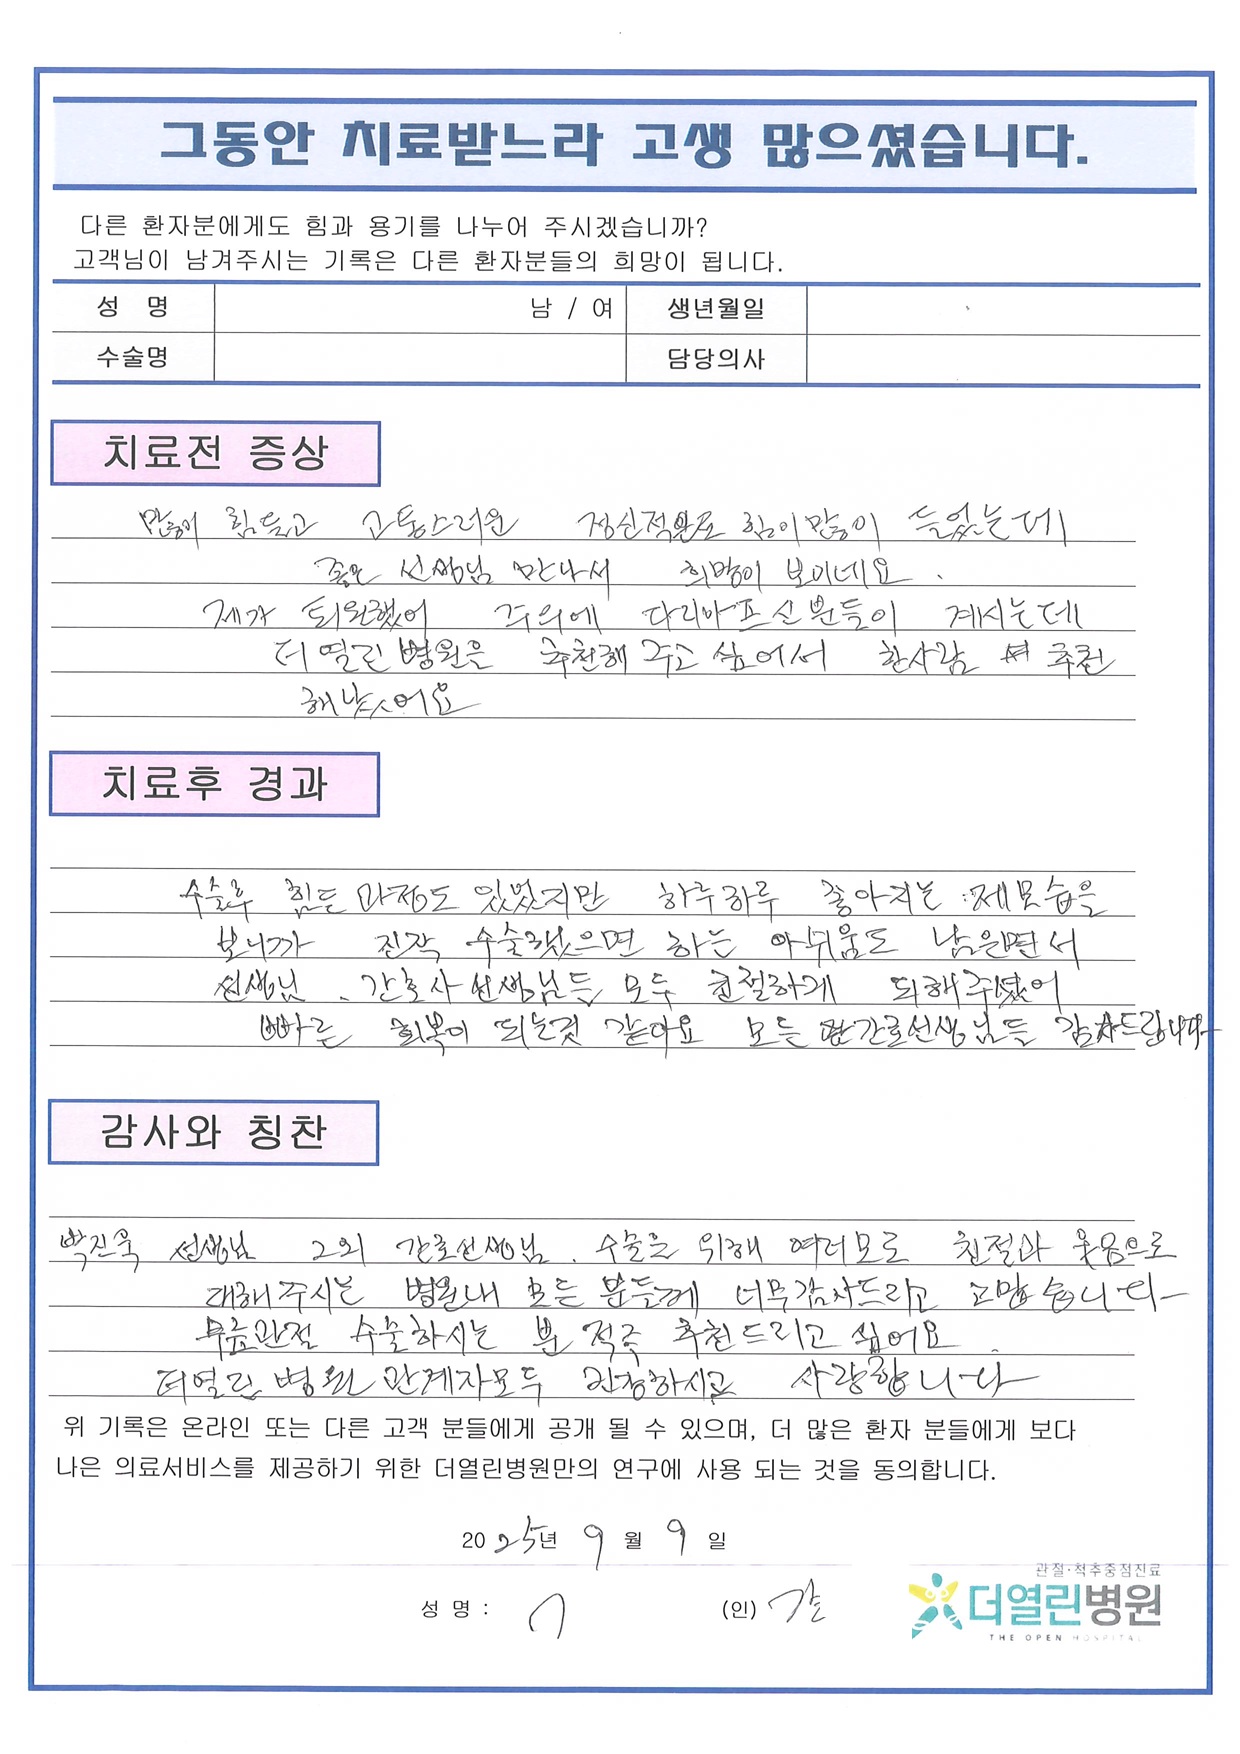 그동안 치료받느라 고생 많으셨습니다.
다른 환자분에게도 힘과 용기를 나누어 주시겠습니까?
고객님이 남겨주시는 기록은 다른 환자분들의 희망이 됩니다.
성 명 남 / 여 생년월일
수술명 담당의사
치료전 증상
많이 힘들고 고통스러운 정신적으로 힘이많이 들었는데
좋은 선생님 만나서 희망이 보이네요.
제가 퇴원했어 주위에 다리아프신분들이 계시는데
더열린병원을 추천해주고 싶어서 한사람 추천
해났어요
치료후 경과
수술후 힘든 과정도 있었지만 하루하루 좋아지는 제모습을
보니까 진작 수술했으면 하는 아쉬움도 남은면서
선생님. 간호사선생님들 모두 친절하게 되해주셨어
빠른 회복이 되는것 같아요 모든 간호선생님들 감사드립니다
감사와 칭찬
박진욱 선생님 그외 간호선생님. 수술을 위해 여러모로 친절과 웃음으로
대해주시는 병원내 모든 분들께 너무감사드리고 고맙습니다
무릎관절 수술하시는 분 적극 추천드리고 싶어요.
더열린 병원 관계자모두 건강하시고 사랑합니다
위 기록은 온라인 또는 다른 고객 분들에게 공개 될 수 있으며, 더 많은 환자 분들에게 보다
나은 의료서비스를 제공하기 위한 더열린병원만의 연구에 사용 되는 것을 동의합니다.
2025년 9월 9일
성 명 : (인)
관절·척추중점진료
더열린병원
THE OPEN HOSPITAL